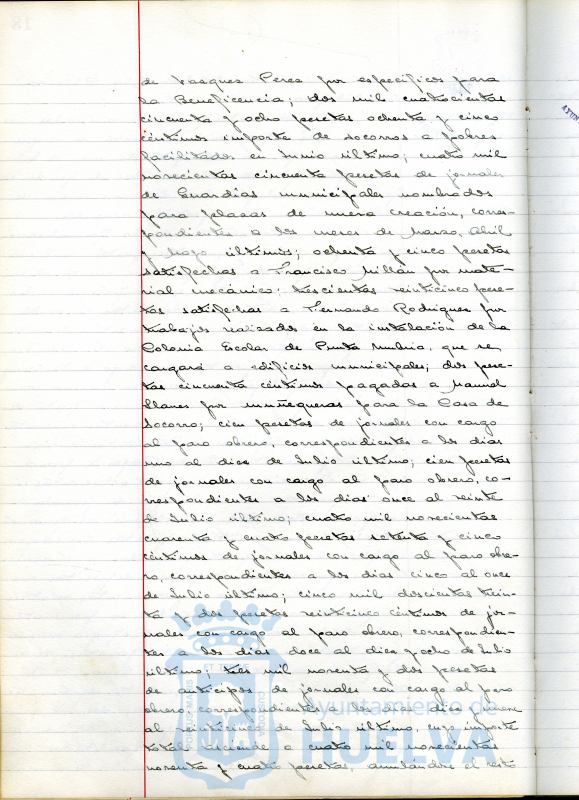 de Vazquez Perez por específicos para
la Beneficencia; dos mil cuatrocientas
cincuenta y ocho pesetas ochenta y cinco
céntimos importe de socorros a pobres
facilitados en Junio último; cuatro mil
novecientas cincuenta pesetas de jornales
de Guardias municipales nombrados
para plazas de nueva creación, corres-
pondientes a los meses de Marzo, Abril
y Mayo últimos; ochenta y cinco pesetas
satisfechas a Francisco Millán por mate-
rial mecánico; trescientas veinticinco pese-
tas satisfechas a Fernando Rodriguez por
trabajos realizados en la instalación de la
Colonia Escolar de Punta Umbria, que se
cargará a edificios municipales; dos pese-
tas cincuenta céntimos pagadas a Manuel
Llanes por muñequeras para la Casa de
Socorro; cien pesetas de jornales con cargo
al paro obrero, correspondientes a los dias
uno al diez de Julio último; cien pesetas
de jornales con cargo al paro obrero, co-
rrespondientes a los dias once al veinte
de Julio último; cuatro mil novecientas
cuarenta y cuatro pesetas setenta y cinco
céntimos de jornales con cargo al paro obre-
ro, correspondientes a los dias cinco al once
de Julio último; cinco mil doscientas trein-
ta y dos pesetas veinticinco céntimos de jor-
nales con cargo al paro obrero, correspondien-
tes a los dias doce al diez y ocho de Julio
último; tres mil noventa y dos pesetas
de anticipos de jornales con cargo al paro
obrero, correspondientes a los dias diez y nueve
al veinticinco de Julio último, cuyo importe
total asciende a cuatro mil novecientas
noventa y cuatro pesetas, anulándose el resto
Ayuntamiento de
HUELVA